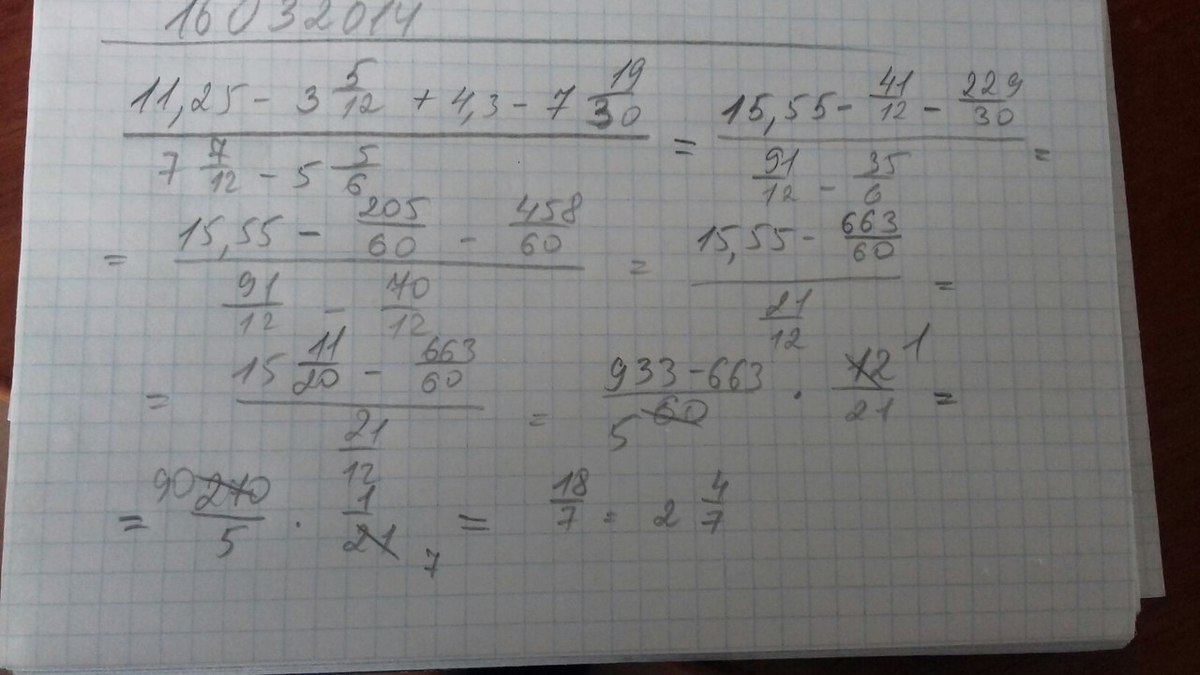 16032014
(11,25 - 3 5/12 + 4,3 - 7 19/30) / (7 7/12 - 5 5/6) = (15,55 - 41/12 - 229/30) / (91/12 - 35/6) =
= (15,55 - 205/60 - 458/60) / (91/12 - 70/12) = (15,55 - 663/60) / (21/12) =
= (15 11/20 - 663/60) / (21/12) = (933 - 663) / 60 5 · 12 1 / 21 =
= 90 270 / 5 · 1 / 21 7 = 18/7 = 2 4/7